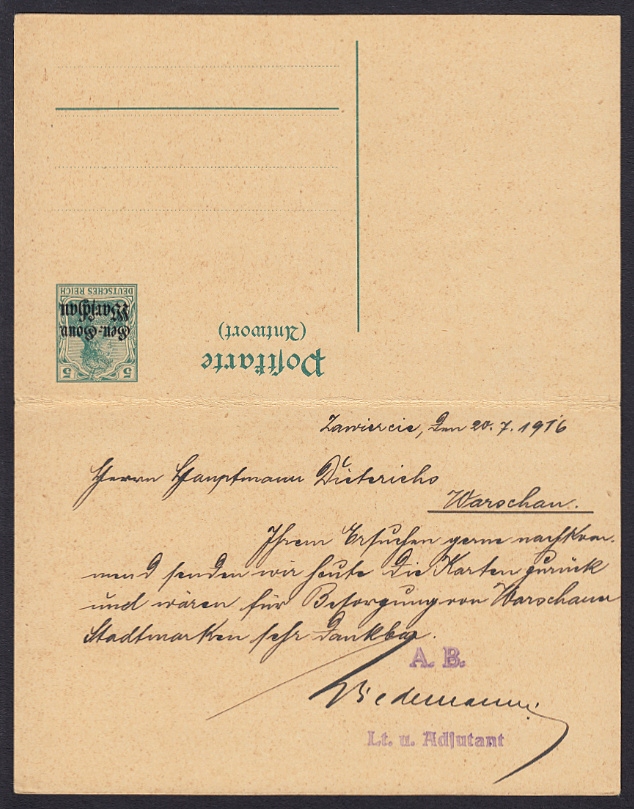 Postkarte
(Antwort)
5 5
Gen.-Gouv.
Warschau
DEUTSCHES REICH
Zawiercie, den 20. 7. 1916
Herrn Hauptmann Dieterichs
Warschau.
Ihrem Ersuchen gerne nachkom-
mend senden wir heute die Karten zurück
und wären für Besorgung von Warschauer
Stadtmarken sehr dankbar.
A. B.
Wiedemann
Lt. u. Adjutant